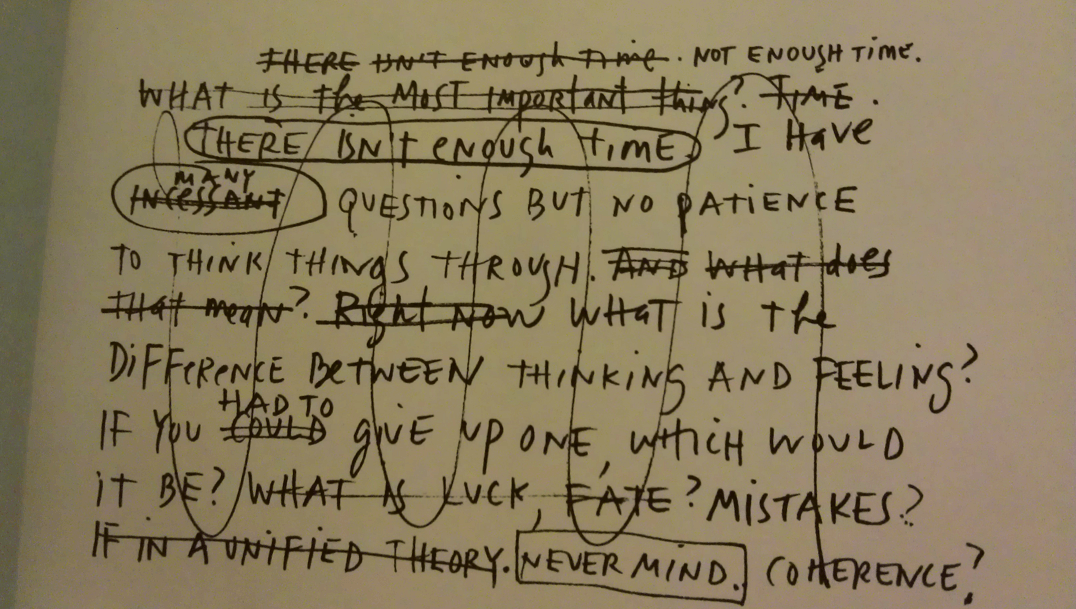 THERE ISN'T ENOUGH TIME. NOT ENOUGH TIME.
WHAT is the MOST IMPORTANT thing? TIME.
THERE ISN't enough tiME I Have
MANY
INCESSANT QUESTIONS BUT NO PATIENCE
TO THINK THINGS THROUGH. AND What does
that mean? Right NOW WHaT is the
DiFFeRENCE BeTWEEN THINKING AND FEELING?
HAD TO
IF YOU COULD giVE UP ONE, WHICH WOULD
iT BE? WHAT IS LUCK, FATE? MiSTAKES?
IF IN A UNIFIED THEORY. NEVER MIND. COHERENCE?